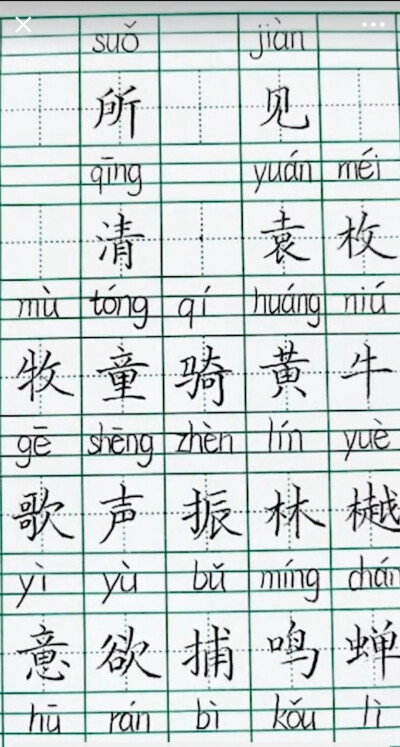 suǒ jiàn
所 见
qīng yuán méi
清 · 袁 枚
mù tóng qí huáng niú
牧 童 骑 黄 牛
gē shēng zhèn lín yuè
歌 声 振 林 樾
yì yù bǔ míng chán
意 欲 捕 鸣 蝉
hū rán bì kǒu lì